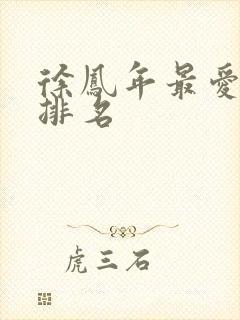 徐鳳年最愛
排名
虎三石